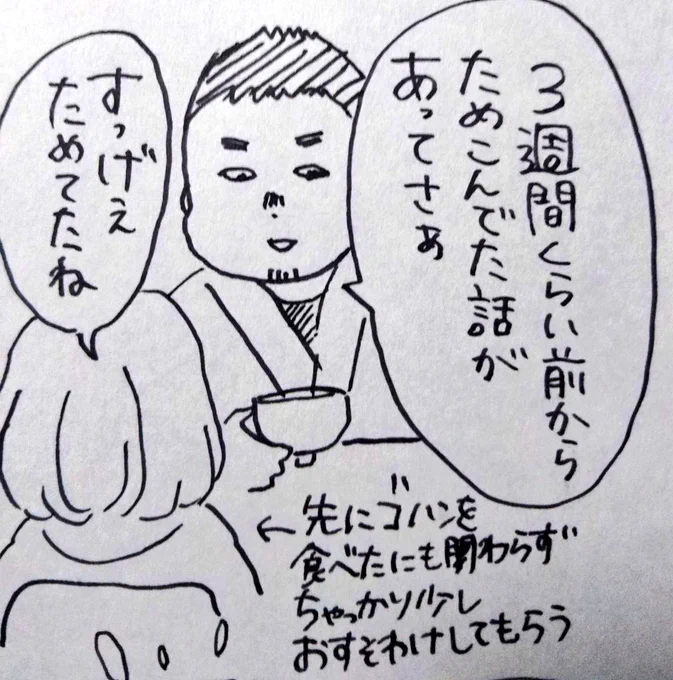 3週間くらい前から
ためこんでた話が
あってさぁ
すっげぇ
ためてたね
←先にゴハンを
食べたにも関わらず
ちゃっかり少し
おすそわけしてもらう